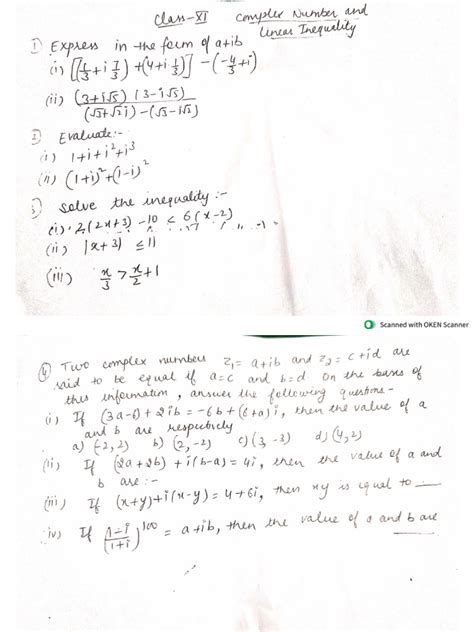 Class-XI Complex Number and
Linear Inequality
1) Express in the form of a+ib
(i) [(1/3 + i 7/3) + (4 + i 1/3)] - (-4/3 + i)
(ii) (3+i√5) (3-i√5)
(√3+√2i) - (√3-i√2)
2) Evaluate:-
(i) 1+i+i²+i³
(ii) (1+i)²+(1-i)²
3) Solve the inequality :-
(i) 2(2x+3) -10 < 6(x-2)
(ii) |x+3| ≤ 11
(iii) x/3 > x/2 + 1
Scanned with OKEN Scanner
4) Two complex numbers z₁= a+ib and z₂= c+id are
said to be equal if a=c and b=d On the basis of
this information, answer the following questions-
(i) If (3a-6)+2ib = -6b+(6+a)i, then the value of a
and b are respectively
a) (-2,2) b) (2,-2) c) (3,-3) d) (4,2)
(ii) If (2a+2b) + i(b-a) = 4i, then the value of a and
b are :-
(iii) If (x+y)+i(x-y) = 4+6i, then xy is equal to __
iv) If (1-i/1+i)^100 = a+ib, then the value of a and b are __